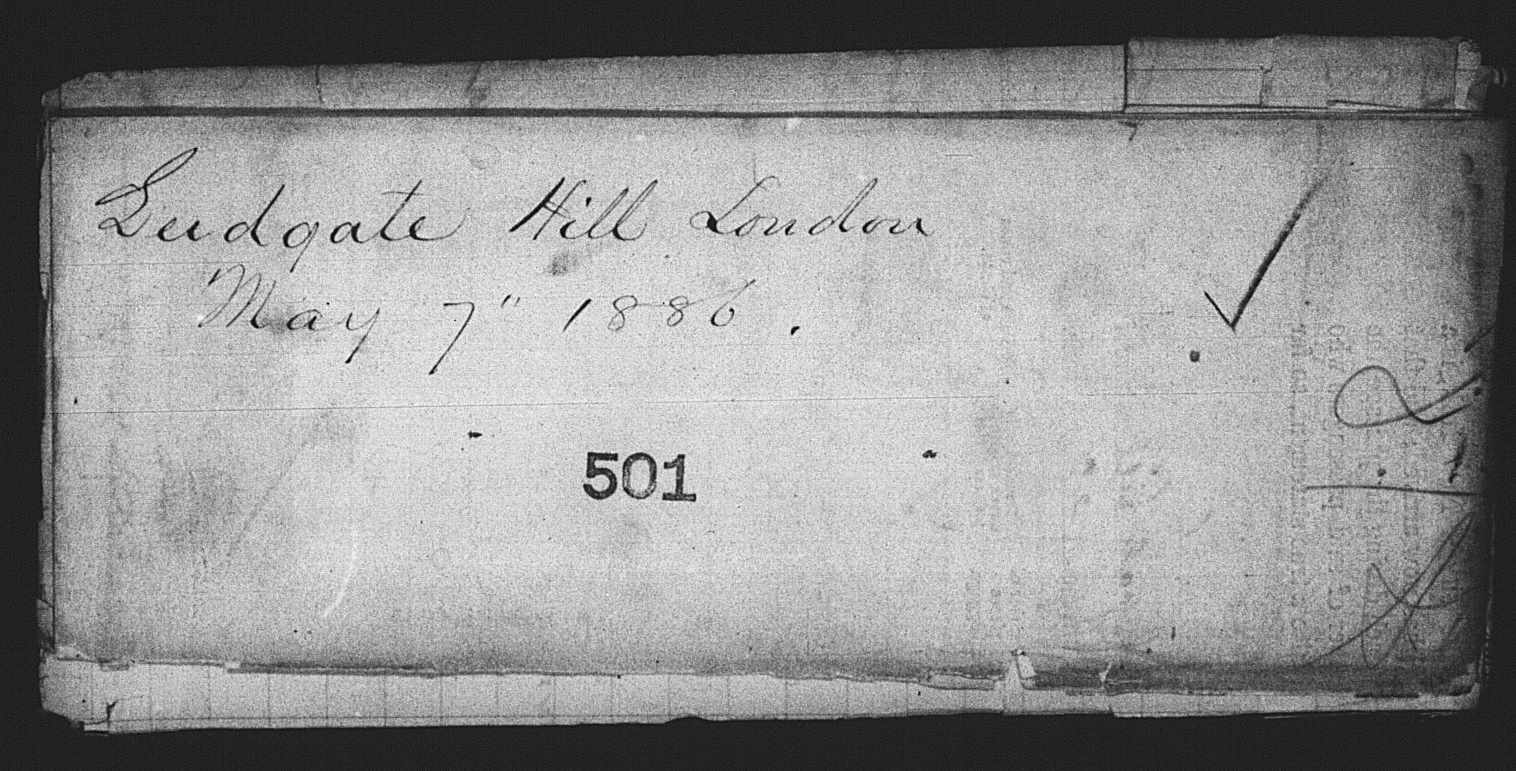 Ludgate Hill London
May 7" 1886.
501